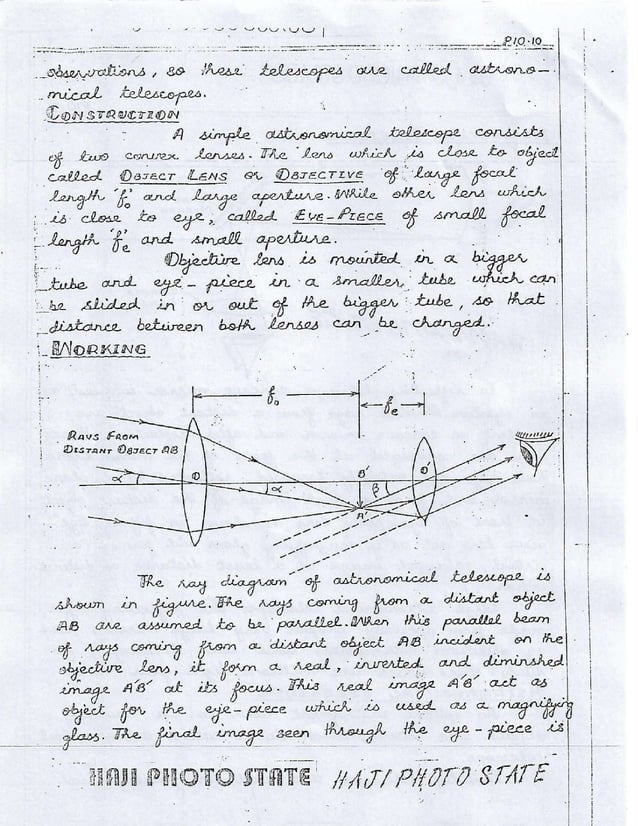 P10-10
observations, so these telescopes are called astrono-
mical telescopes.
CONSTRUCTION
A simple astronomical telescope consists
of two convex lenses. The lens which is close to object
called OBJECT LENS or OBJECTIVE of large focal
length 'fo' and large aperture. While other lens which
is close to eye, called EYE-PIECE of small focal
length 'fe' and small aperture.
Objective lens is mounted in a bigger
tube and eye-piece in a smaller tube which can
be slided in or out of the bigger tube, so that
distance between both lenses can be changed.
WORKING
fo
fe
RAYS FROM
DISTANT OBJECT AB
α
O
α
B'
β
O'
A'
The ray diagram of astronomical telescope is
shown in figure. The rays coming from a distant object
AB are assumed to be parallel. When this parallel beam
of rays coming from a distant object AB incident on the
objective lens, it form a real, inverted and diminshed
image A'B' at its focus. This real image A'B' act as
object for the eye-piece which is used as a magnifying
glass. The final image seen through the eye-piece is
HAJI PHOTO STATE HAJI PHOTO STATE